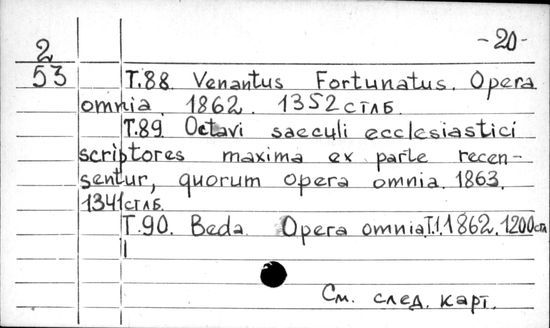 -20-
2
53
T.88. Venantus Fortunatus. Opera
omnia. 1862. 1352 стлб.
T.89. Octavi saeculi ecclesiastici
scriptores maxima ex parte recen-
sentur, quorum opera omnia. 1863.
1341 стлб.
T.90. Beda. Opera omnia T.1. 1862. 1200 стл
См. след. карт.